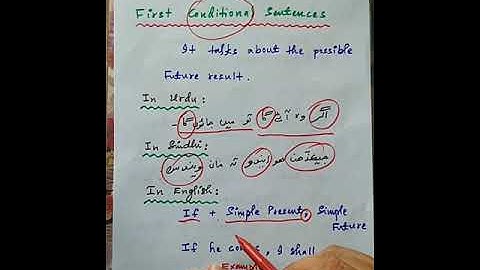 First Conditional Sentences
It talks about the possible
Future result.
In Urdu:
اگر وہ آئے گا تو میں جاؤں گا۔
In Sindhi:
جيڪڏهن هو ايندو ته مان ويندس
In English:
If + Simple Present, Simple
Future
If he comes, I shall
Example